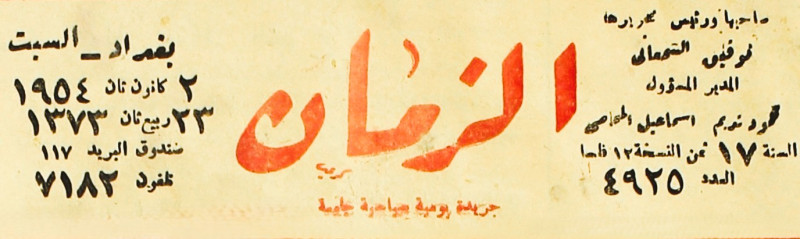 صاحبها ورئيس تحريرها
توفيق السمعاني
المدير المسؤول
محمود نديم اسماعيل المحامي
السنة ١٧ ثمن النسخة ١٢ فلسا
العدد ٤٩٢٥
الزمان
جريدة يومية سياسية جامعة
بغداد - السبت
٢ كانون ثان ١٩٥٤
٢٣ ربيع ثان ١٣٧٣
صندوق البريد ١١٧
تلفون ٧١٨٢